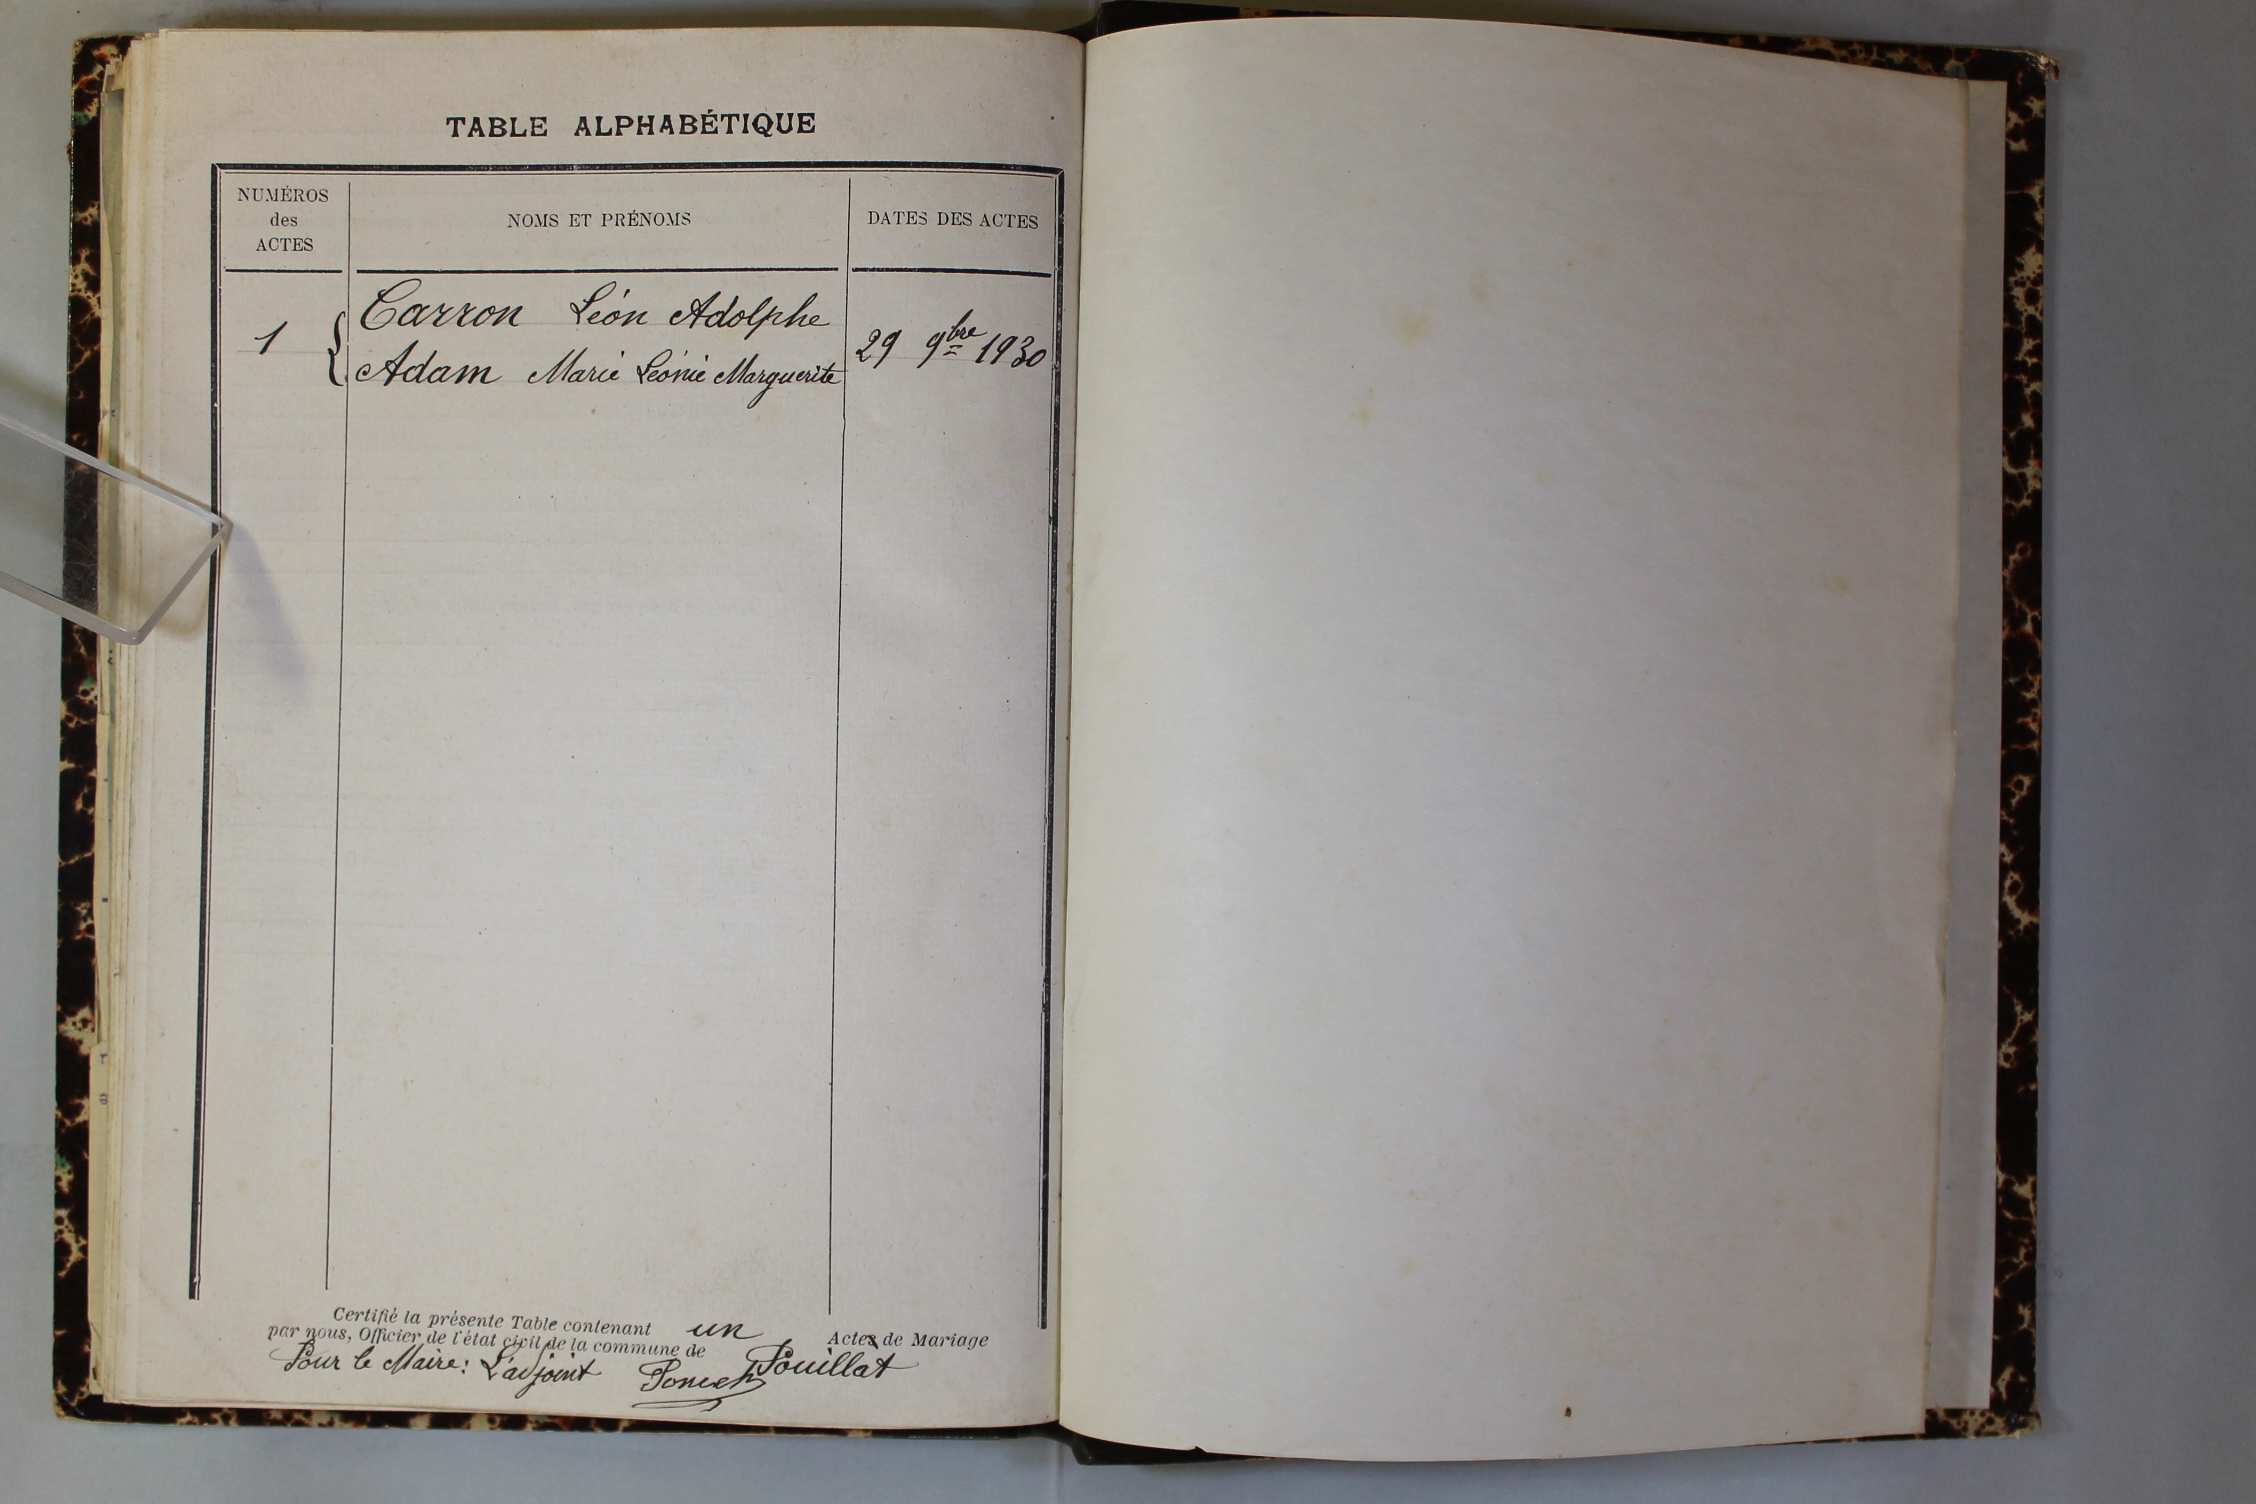 TABLE ALPHABÉTIQUE
NUMÉROS
des
ACTES
NOMS ET PRÉNOMS
DATES DES ACTES
1
Carron Léon Adolphe
Adam Marie Léonie Marguerite
29 9bre 1930
Certifié la présente Table contenant un Actes de Mariage
par nous, Officier de l'état civil de la commune de Pouillat
Pour le Maire: L'adjoint